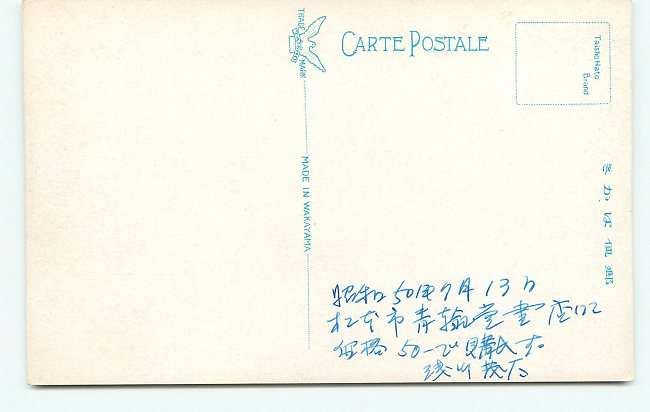 TRADE MARK
CARTE POSTALE
Taisho Hato
Brand
MADE IN WAKAYAMA
きかは便郵
昭和50年9月13日
松本市青翰堂書店にて
価格 50-で購入す。
浅川